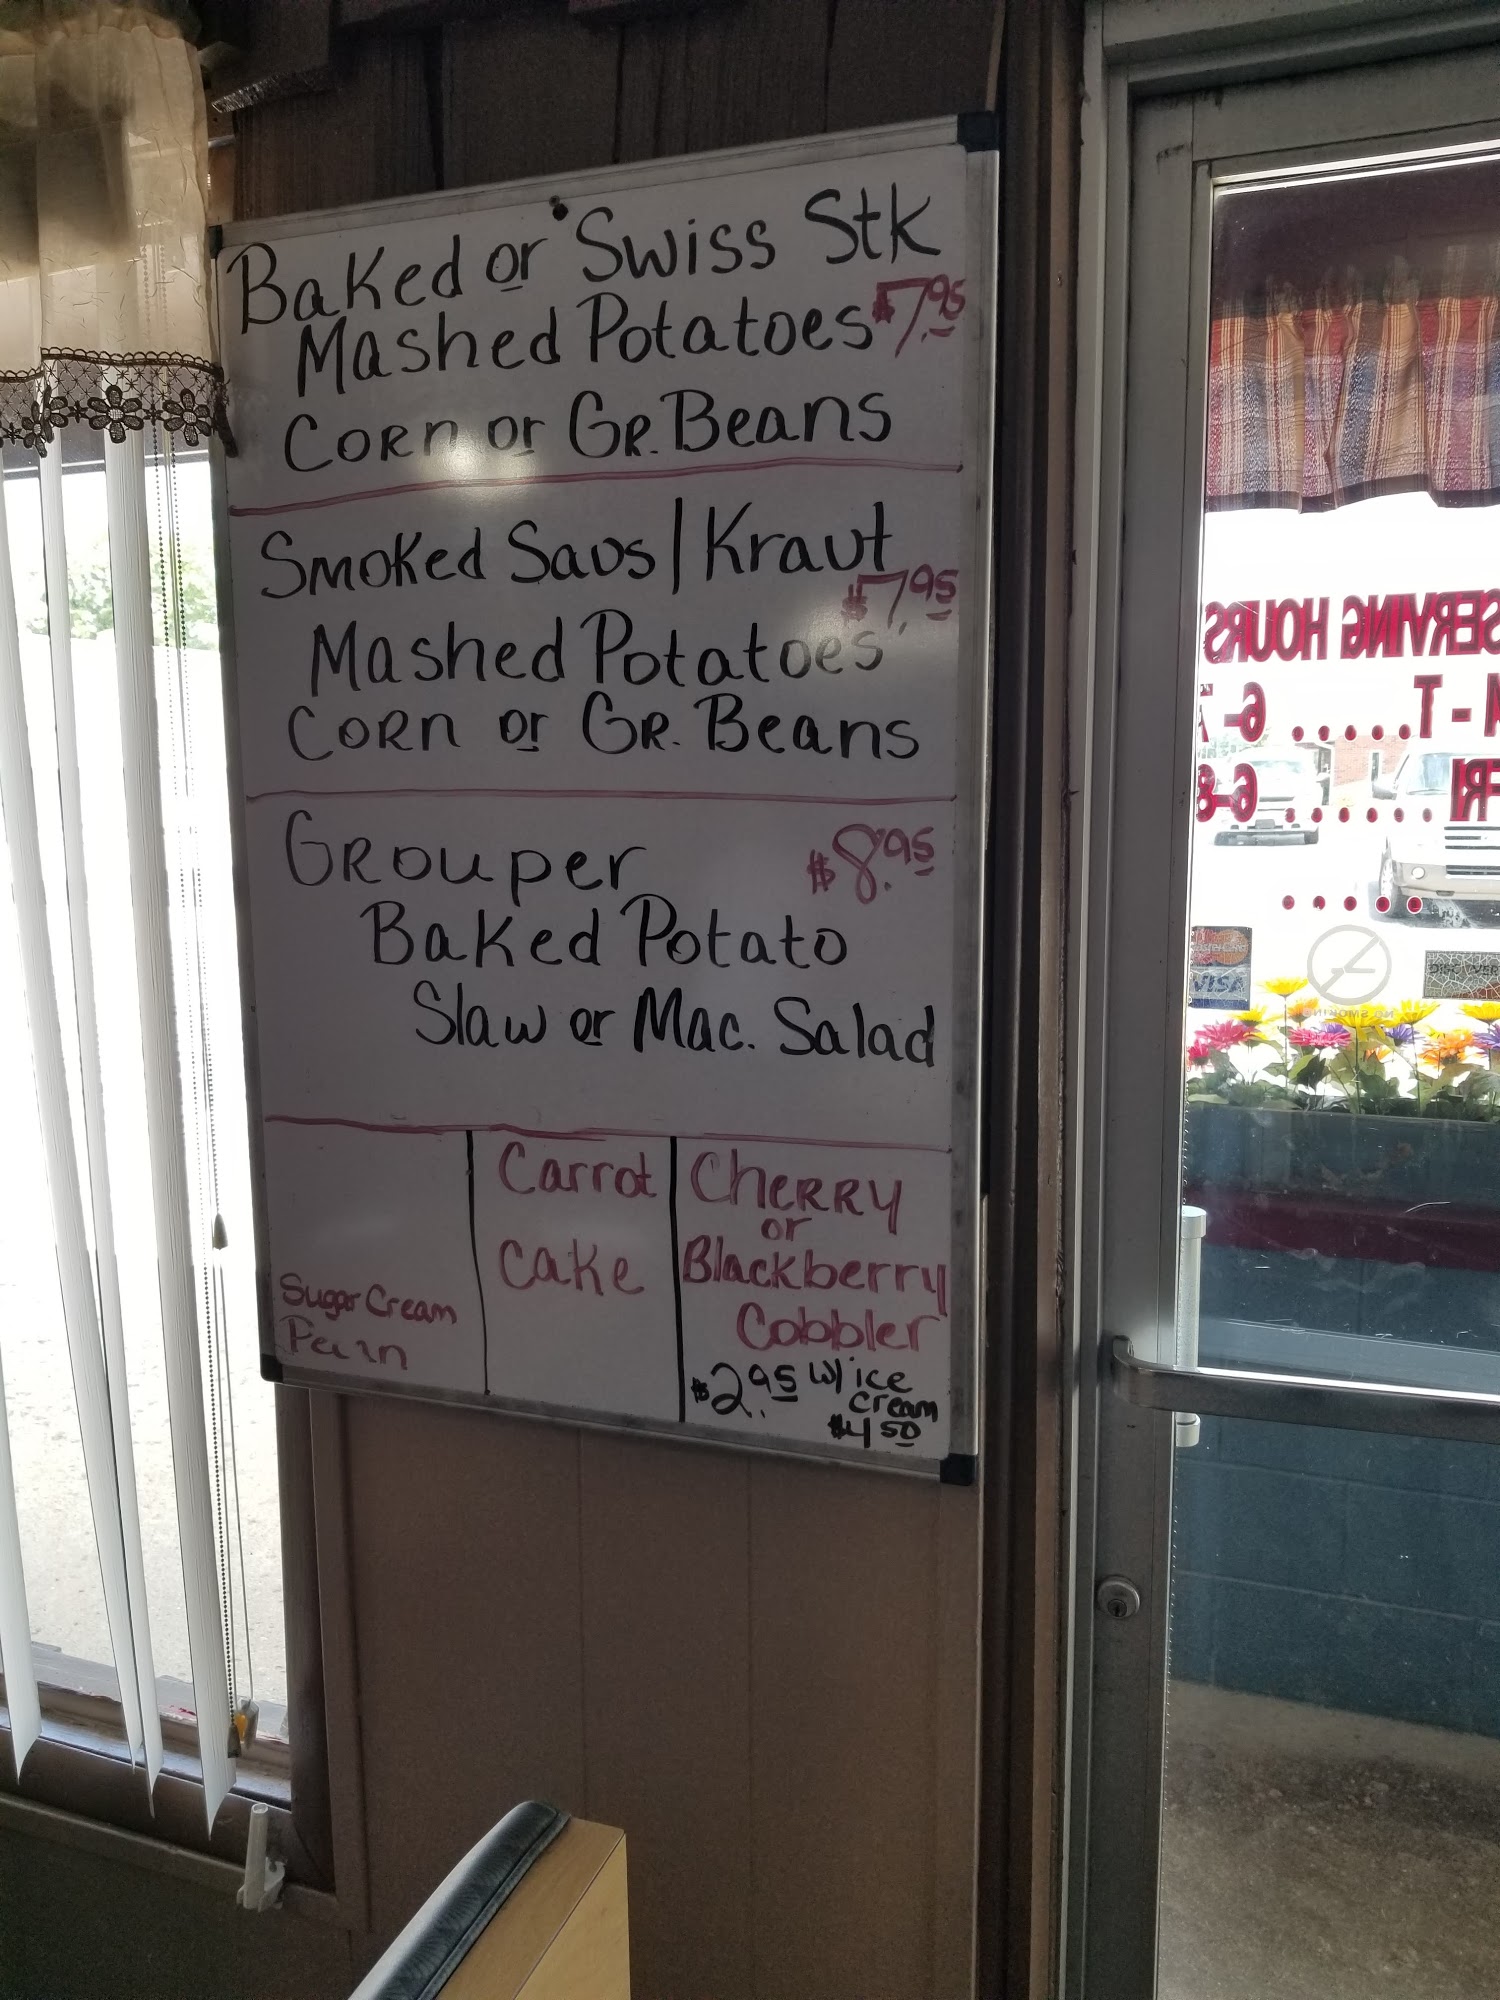 Baked or Swiss Stk
Mashed Potatoes $7.95
Corn or Gr. Beans
Smoked Saus/Kraut
$7.95
Mashed Potatoes
Corn or Gr. Beans
Grouper $8.95
Baked Potato
Slaw or Mac. Salad
Sugar Cream
Carrot
Cake
Cherry
or
Blackberry
Cobbler
$2.95 w/ice
cream
$4.50
SERVING HOURS
- T...... 6-
FRI ....... 6-8
......
MasterCard
VISA
DISCOVER
NO SMOKING